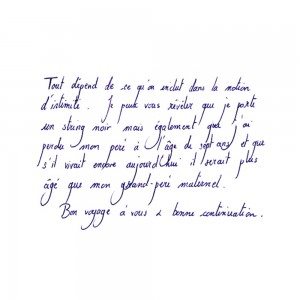 Tout dépend de ce qu'on inclut dans la notion
d'intimité. Je peux vous révéler que je porte
un string noir mais également que j'ai
perdu mon père à l'âge de sept ans et que
s'il vivait encore aujourd'hui il serait plus
âgé que mon grand-père maternel.
Bon voyage à vous & bonne continuation.